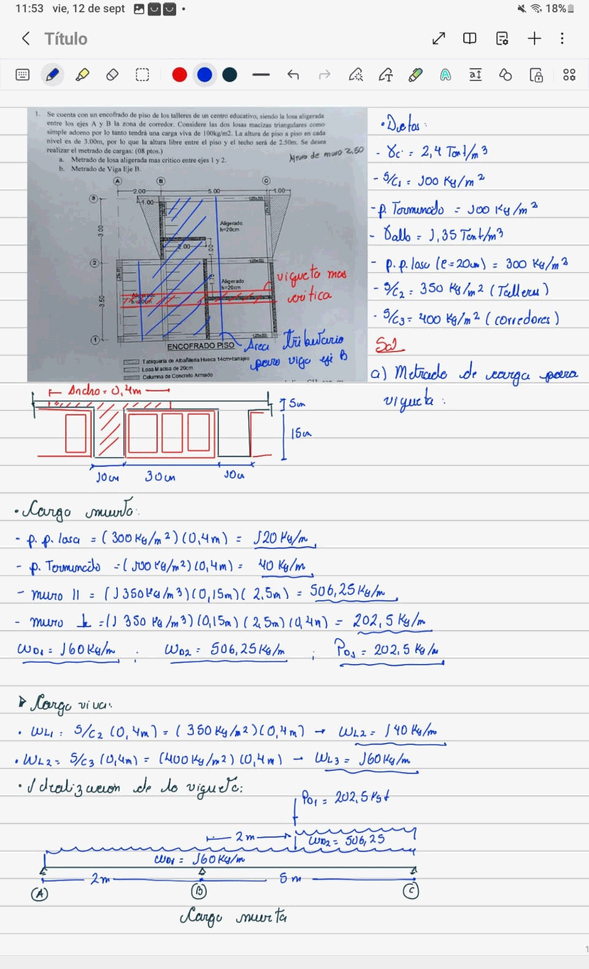 11:53 vie, 12 de sept
18%
Título
1. Se cuenta con un encofrado de piso de los talleres de un centro educativo, siendo la losa aligerada
entre los ejes A y B la zona de corredor. Considere las dos losas macizas triangulares como
simple adorno por lo tanto tendrá una carga viva de 100kg/m2. La altura de piso a piso en cada
nivel es de 3.00m, por lo que la altura libre entre el piso y el techo será de 2.50m. Se desea
realizar el metrado de cargas: (08 ptos.)
a. Metrado de losa aligerada mas critico entre ejes 1 y 2.
b. Metrado de Viga Eje B.
Altura de muro 2,50
A B C
2.00 5.00 1.00
1.00
3
3.00
Aligerado
h=20cm
2.00
1.00
2
Aligerado
h=20cm
vigueta mas
critica
3.50
1
ENCOFRADO PISO
Area tributario
para viga eje B
Tabiquería de Albañilería Hueca 14cm+tarrajeo
Losa Maciza de 20cm
Columna de Concreto Armado
• Datos:
- γc = 2,4 Ton/m³
- S/C1 = 100 Kg/m²
- p. Terminado = 100 Kg/m²
- γalb = 1,35 Ton/m³
- p.p. losa (e=20cm) = 300 Kg/m²
- S/C2 = 350 Kg/m² (Talleres)
- S/C3 = 400 Kg/m² (corredores)
Sol
a) Metrado de carga para
vigueta:
Ancho = 0,4m
5cm
15cm
10cm 30cm 10cm
• Carga muerta:
- p.p. losa = (300 Kg/m²)(0,4m) = 120 Kg/m
- p. Terminado = (100 Kg/m²)(0,4m) = 40 Kg/m
- muro || = (1350 Kg/m³)(0,15m)(2.5m) = 506,25 Kg/m
- muro ⊥ = (1350 Kg/m³)(0,15m)(2,5m)(0,4m) = 202,5 Kg/m
WD1 = 160 Kg/m ; WD2 = 506,25 Kg/m ; PD1 = 202,5 Kg/m
▸ Carga viva:
• WL1 = S/C2 (0,4m) = (350 Kg/m²)(0,4m) → WL2 = 140 Kg/m
• WL2 = S/C3 (0,4m) = (400 Kg/m²)(0,4m) → WL3 = 160 Kg/m
• Idealizacion de la vigueta:
PD1 = 202.5 Kgf
2m
WD2 = 506,25
WD1 = 160 Kg/m
2m 5m
A B C
Carga muerta
1